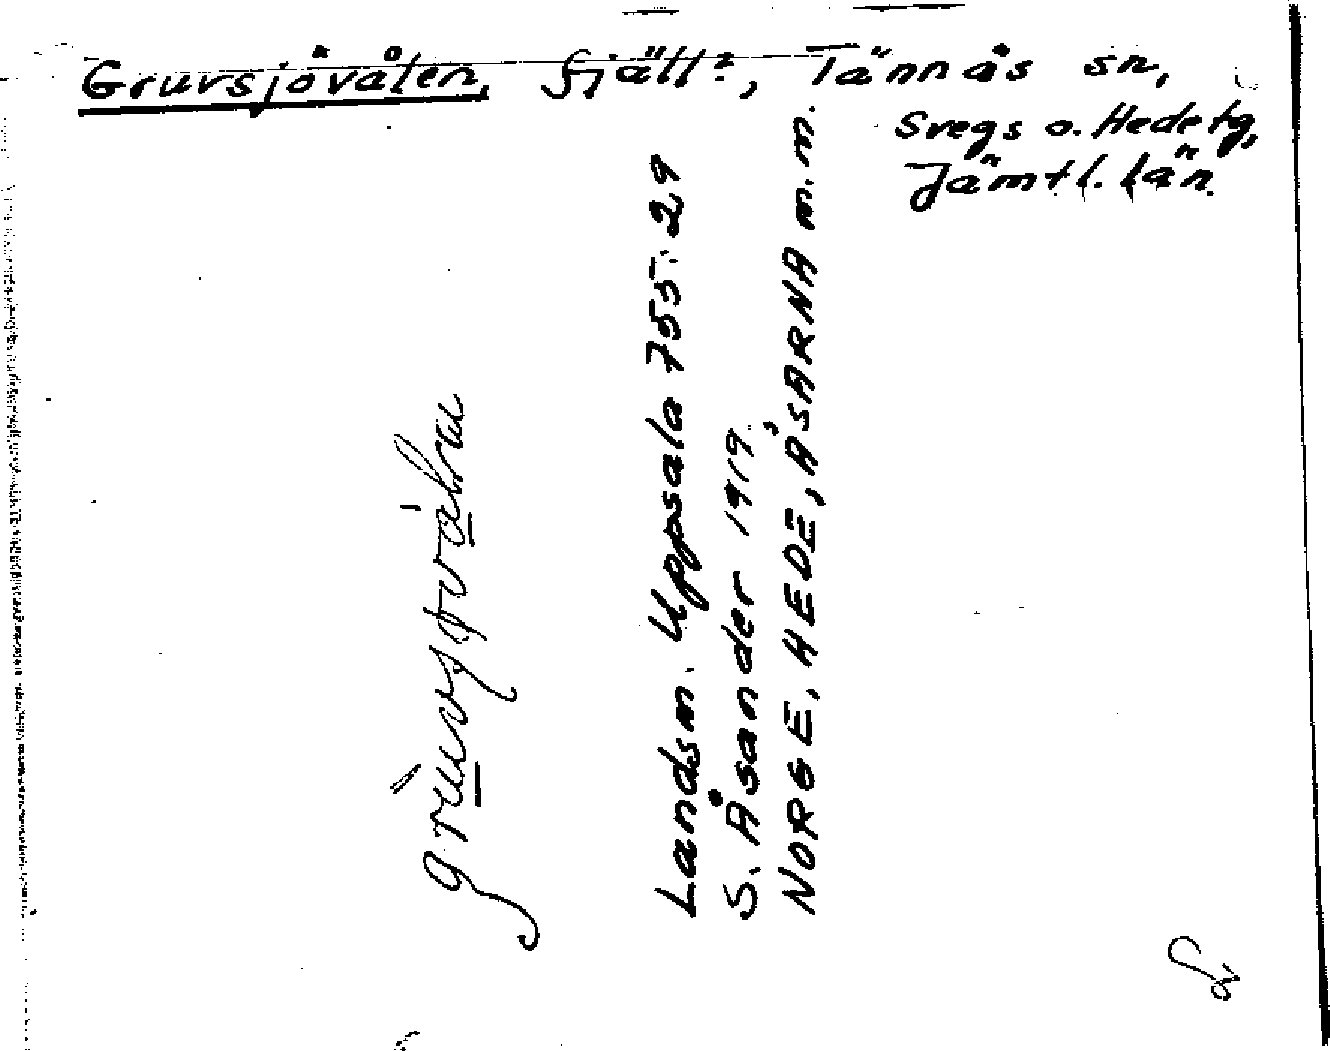 Gruvsjövålen, fjäll?, Tännäs sn,
Svegs o. Hede tg,
Jämtl. län.
Landsm. Uppsala 755:29
S. Åsander 1919.
NORGE, HEDE, ÅSARNA m.m.